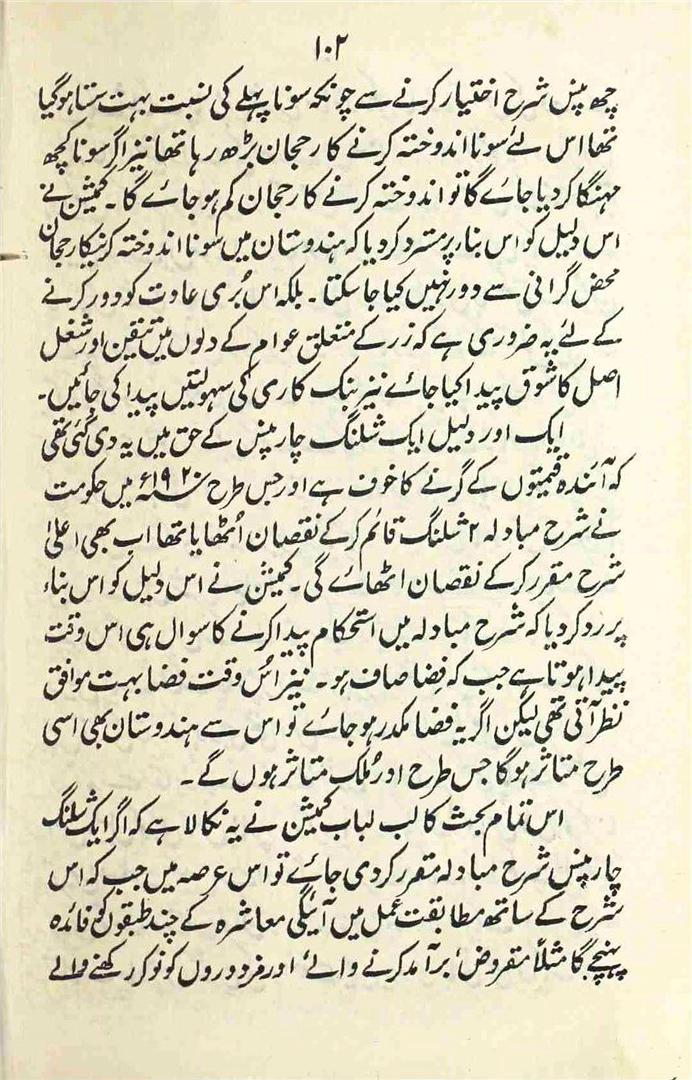 ۱۰۲
چھ پنس شرح اختیار کرنے سے چونکہ سونا پہلے کی نسبت بہت سستا ہوگیا
تھا اس لئے سونا اندوختہ کرنے کا رحجان بڑھ رہا تھا نیز اگر سونا کچھ
مہنگا کردیا جائے گا تو اندوختہ کرنے کا رحجان کم ہوجائے گا۔ کمیشن نے
اس دلیل کو اس بنار پر مسترد کردیا کہ ہندوستان میں سونا اندوختہ کرنیکا رحجان
محض گرانی سے دور نہیں کیا جاسکتا۔ بلکہ اس بُری عادت کو دور کرنے
کے لئے یہ ضروری ہے کہ زر کے متعلق عوام کے دلوں میں تیقین اور شغل
اصل کا شوق پیدا کیا جائے نیز بنک کاری کی سہولتیں پیدا کی جائیں۔
ایک اور دلیل ایک شلنگ چار پنس کے حق میں یہ دی گئی تھی
کہ آئندہ قیمتوں کے گرنے کا خوف ہے اور جس طرح ۱۹۲۰ء میں حکومت
نے شرح مبادلہ ۲ شلنگ قائم کرکے نقصان اُٹھایا تھا اب بھی اعلیٰ
شرح مقرر کرکے نقصان اٹھائے گی۔ کمیشن نے اس دلیل کو اس بناء
پر رد کردیا کہ شرح مبادلہ میں استحکام پیدا کرنے کا سوال ہی اس وقت
پیدا ہوتا ہے جب کہ فِضا صاف ہو۔ نیز اسُ وقت فضا بہت موافق
نظر آتی تھی لیکن اگر یہ فضا مکدر ہوجائے تو اس سے ہندوستان بھی اسی
طرح متاثر ہوگا جس طرح اور مُلک متاثر ہوں گے۔
اس تمام بحث کا لب لباب کمیشن نے یہ نکالا ہے کہ اگر ایک شلنگ
چار پنس شرح مبادلہ مقرر کردی جائے تو اس عرصہ میں جب کہ اس
شرح کے ساتھ مطابقت عمل میں آئیگی معاشرہ کے چند طبقوں کو فائدہ
پہنچے گا مثلاً مقروض، برآمد کرنے والے، اور مزدوروں کو نوکر رکھنے والے